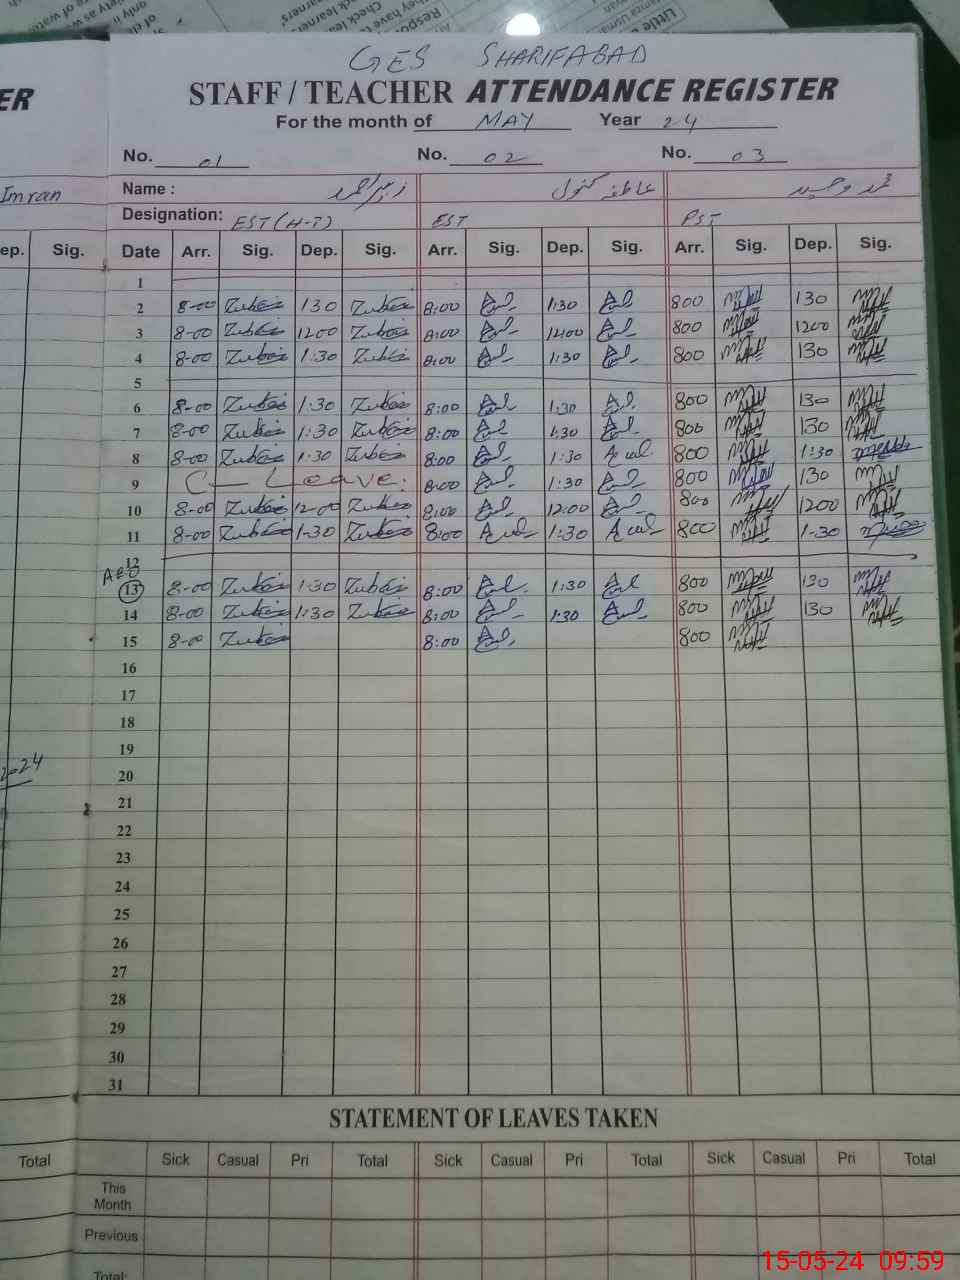 GES SHARIFABAD
STAFF / TEACHER ATTENDANCE REGISTER
ER
For the month of MAY Year 24
No. 01 No. 02 No. 03
Imran
Name : زبیر احمد عاطفہ کنول محمد وحید
Designation: EST (H-T) EST PST
ep. Sig. Date Arr. Sig. Dep. Sig. Arr. Sig. Dep. Sig. Arr. Sig. Dep. Sig.
1
2 8-00 Zubair 1:30 Zubair 8:00 1:30 800 130
3 8-00 Zubair 1200 Zubair 8:00 12:00 800 1200
4 8-00 Zubair 1:30 Zubair 8:00 1:30 800 130
5
6 8-00 Zubair 1:30 Zubair 8:00 1:30 800 130
7 8-00 Zubair 1:30 Zubair 8:00 1:30 800 130
8 8-00 Zubair 1:30 Zubair 8:00 1:30 800 1:30
9 C- Leave. 8:00 1:30 800 130
10 8-00 Zubair 12-00 Zubair 8:00 12:00 800 1200
11 8-00 Zubair 1-30 Zubair 8:00 1:30 800 1-30
12
AEO
13 8-00 Zubair 1:30 Zubair 8:00 1:30 800 130
14 8-00 Zubair 1:30 Zubair 8:00 1:30 800 130
15 8-00 Zubair 8:00 800
16
17
18
19
20
21
22
23
24
25
26
27
28
29
30
31
STATEMENT OF LEAVES TAKEN
Total Sick Casual Pri Total Sick Casual Pri Total Sick Casual Pri Total
This
Month
Previous
Total:
15-05-24 09:59